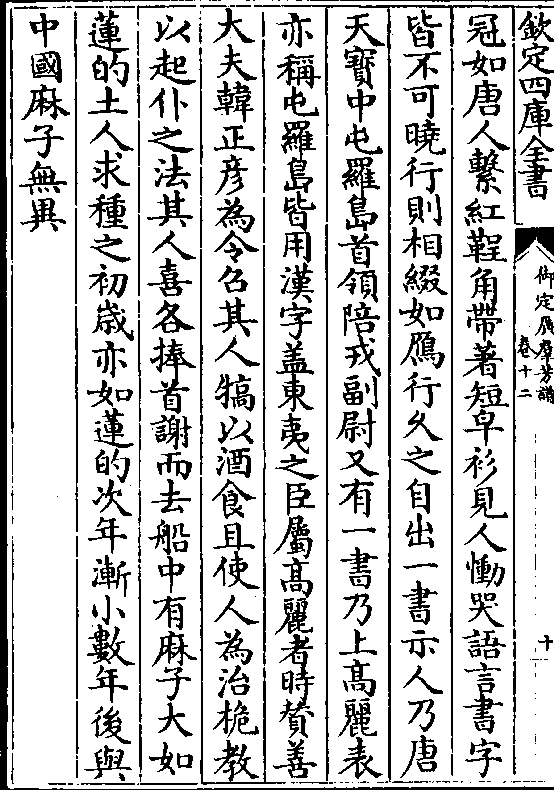 欽定四庫全書
御定廣羣芳譜
卷十二
十
冠如唐人繫紅鞓角帶著短皁衫見人慟哭語言書字
皆不可曉行則相綴如鴈行久之自出一書示人乃唐
天寶中屯羅島首領陪戎副尉又有一書乃上髙麗表
亦稱屯羅島皆用漢字盖東夷之臣屬髙麗者時賛善
大夫韓正彦為令召其人犒以酒食且使人為治桅教
以起仆之法其人喜各捧首謝而去船中有麻子大如
蓮的土人求種之初歳亦如蓮的次年漸小數年後與
中國麻子無異